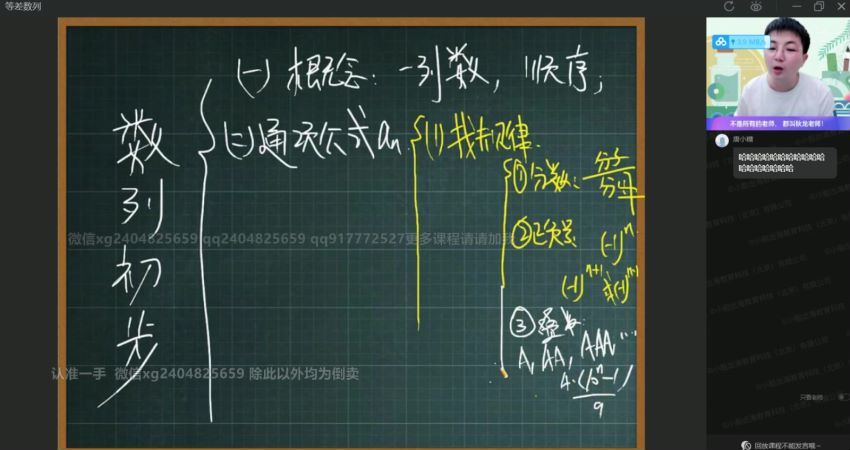 等差数列
3.9 MB/s
数列初步
(一) 概念: 一列数, 顺序;
(二) 通项公式an
(1) 找规律.
① 分数: 分子/分母
② 正负号: (-1)^n
(-1)^{n+1} 或 (-1)^{n-1}
③ 叠数:
A, AA, AAA, ...
A·(10^n-1)/9
微信xg2404825659 qq2404825659 qq917772527更多课程请请加我
认准一手 微信xg2404825659 除此以外均为倒卖
不是所有的老师，都叫狄龙老师！
唐小糖
哈哈哈哈哈哈哈哈哈哈哈
哈哈哈哈哈哈哈
只看老师
回放课程不能发言哦~